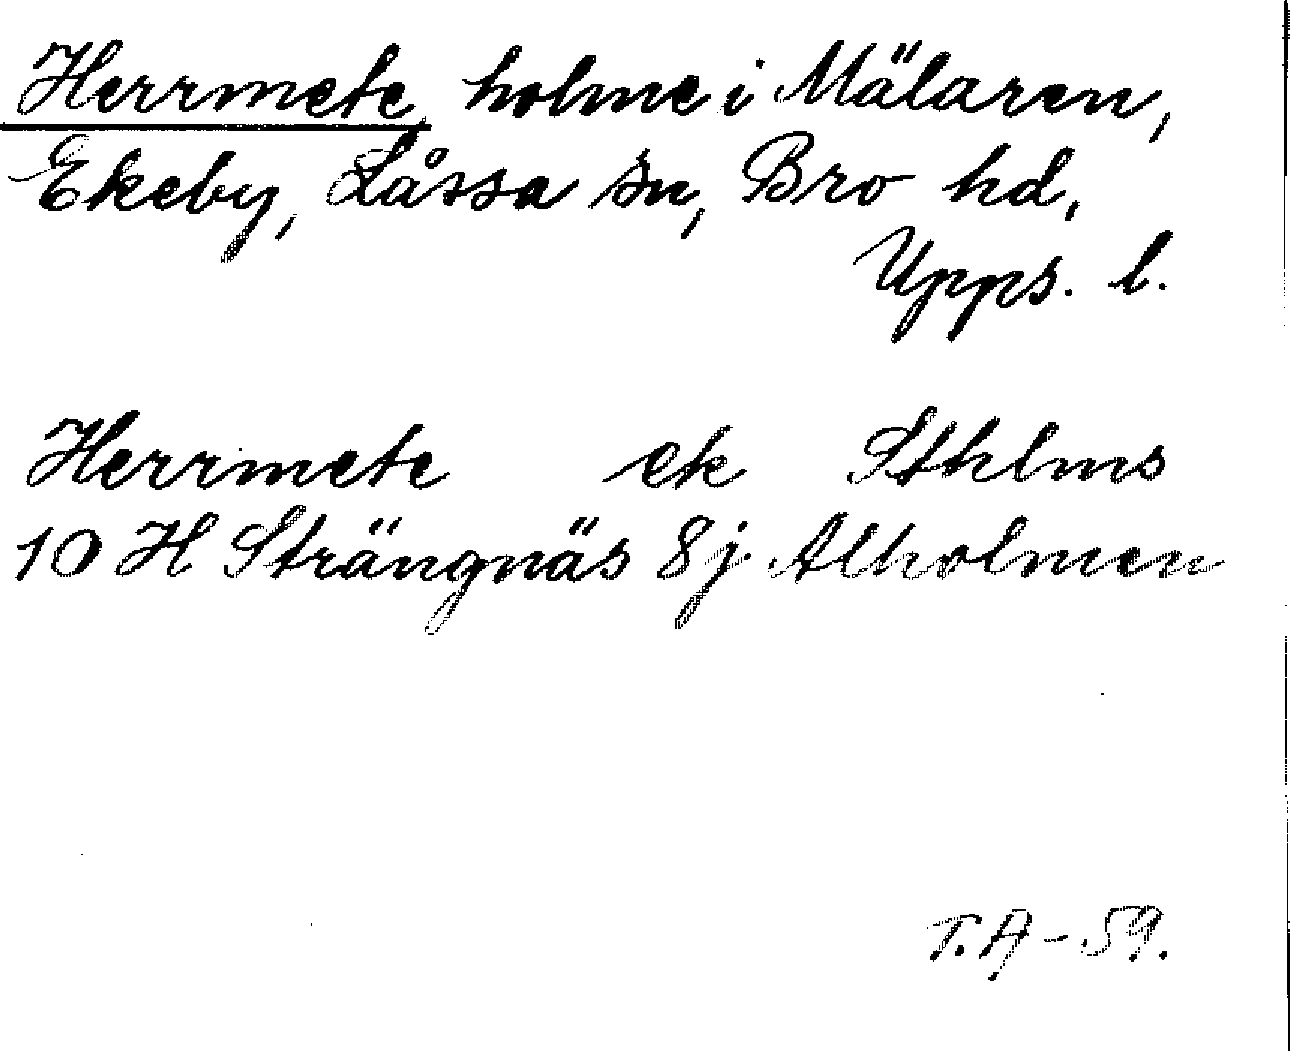 Herrmete, holme i Mälaren,
Ekeby, Låssa sn, Bro hd,
Upps. l.
Herrmete ek Sthlms
10 H Strängnäs 8j. Alholmen
T.A-59.